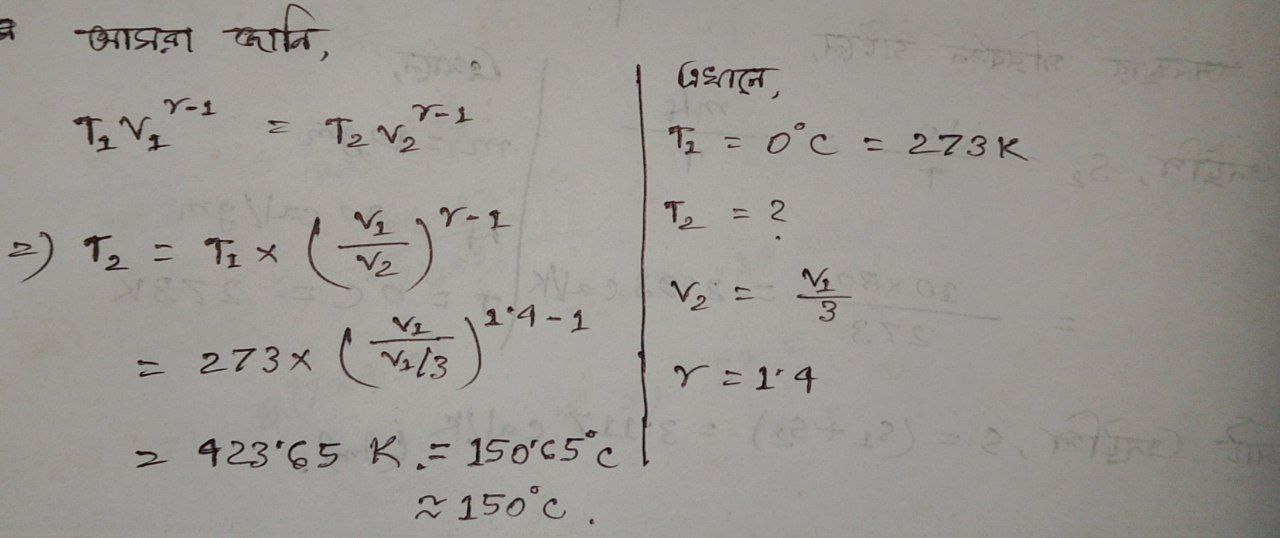 আমরা জানি,
T₁V₁^(γ-1) = T₂V₂^(γ-1)
⇒) T₂ = T₁ × (V₁/V₂)^(γ-1)
= 273 × (V₁/(V₁/3))^(1.4-1)
= 423.65 K. = 150.65°C
≈ 150°C.
এখানে,
T₁ = 0°C = 273K
T₂ = ?
V₂ = V₁/3
γ = 1.4